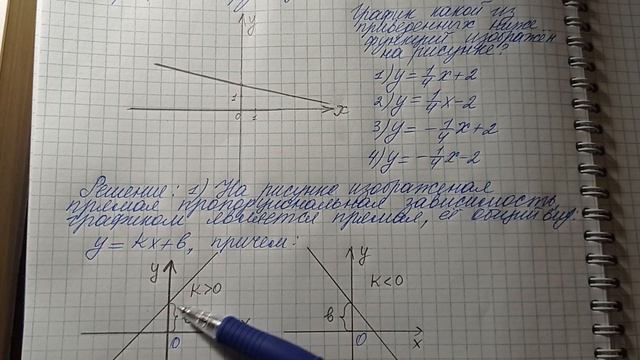 График какой из
приведенных ниже
функций изображен
на рисунке?
y
1
0 1
x
1) y = 1/4 x + 2
2) y = 1/4 x - 2
3) y = - 1/4 x + 2
4) y = - 1/4 x - 2
Решение: 1) На рисунке изображеная
прямая пропорциональная зависимость,
графиком является прямая, её общий вид:
y = kx + b, причем:
y
K>0
x
0
y
K<0
b
0
x